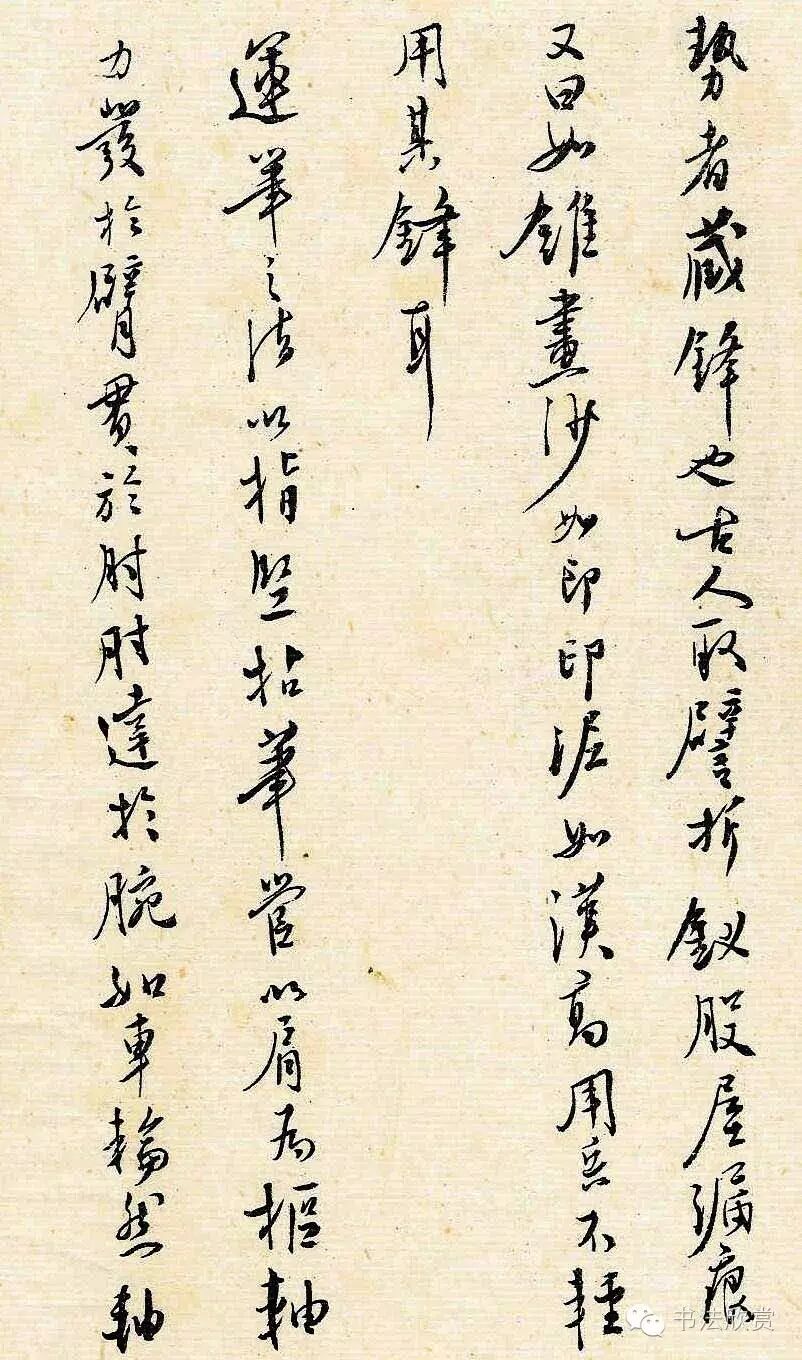 勢者藏鋒也古人取譬折釵股屋漏痕
又曰如錐畫沙如印印泥如漢高用兵不輕
用其鋒耳
運筆之法以指竪拈筆管以肩為樞軸
力發於臂貫於肘肘達於腕如車輪然軸
书法欣赏